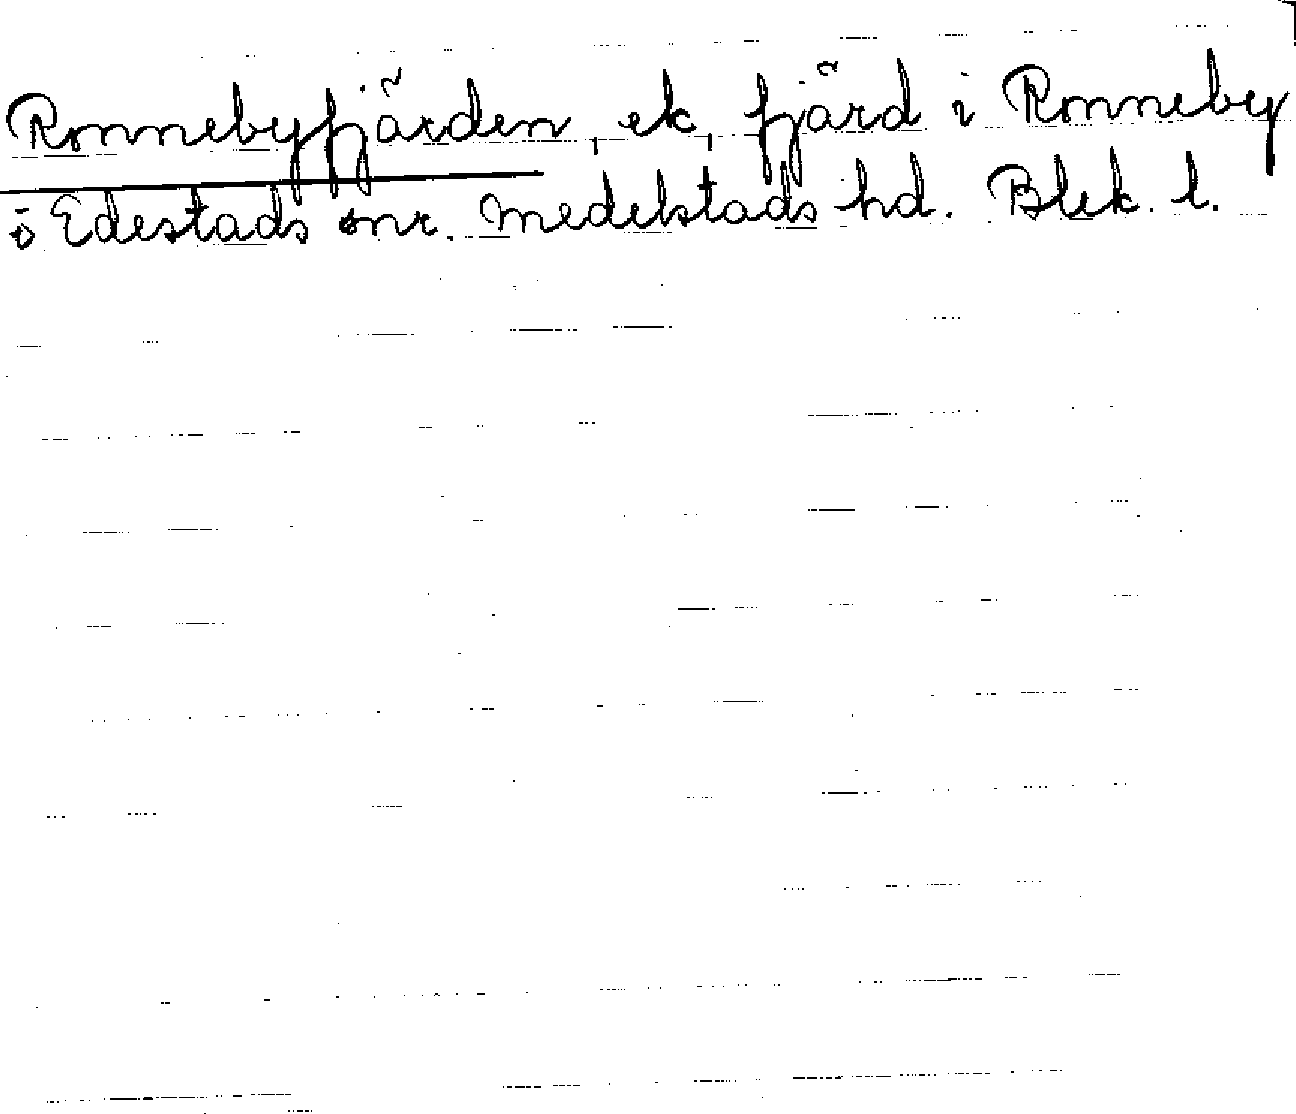 Ronnebyfjärden, ek, fjärd i Ronneby
o Edestads snr. Medelstads hd. Blek. l.